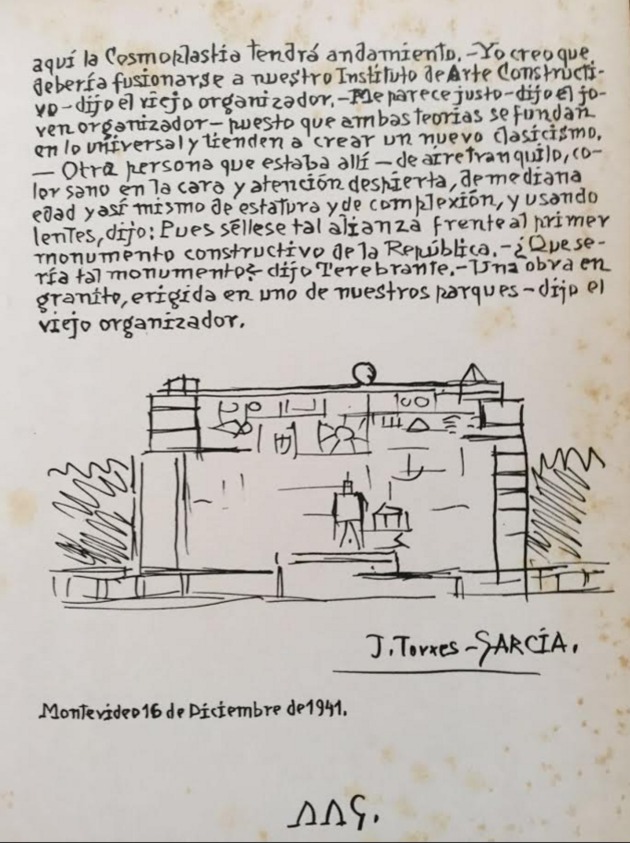 aquí la Cosmoplastia tendrá andamiento.-Yo creo que
debería fusionarse a nuestro Instituto de Arte Constructi-
vo-dijo el viejo organizador.-Me parece justo-dijo el jo-
ven organizador-puesto que ambas teorías se fundan
en lo universal y tienden a crear un nuevo clasicismo.
— Otra persona que estaba allí — de aire tranquilo, co-
lor sano en la cara y atención despierta, de mediana
edad y así mismo de estatura y de complexión, y usando
lentes, dijo: Pues séllese tal alianza frente al primer
monumento constructivo de la República.-¿Que se-
ría tal monumento?-dijo Terebrante.-Una obra en
granito, erigida en uno de nuestros parques-dijo el
viejo organizador.
J. Torres-GARCÍA.
Montevideo 16 de Diciembre de 1941.